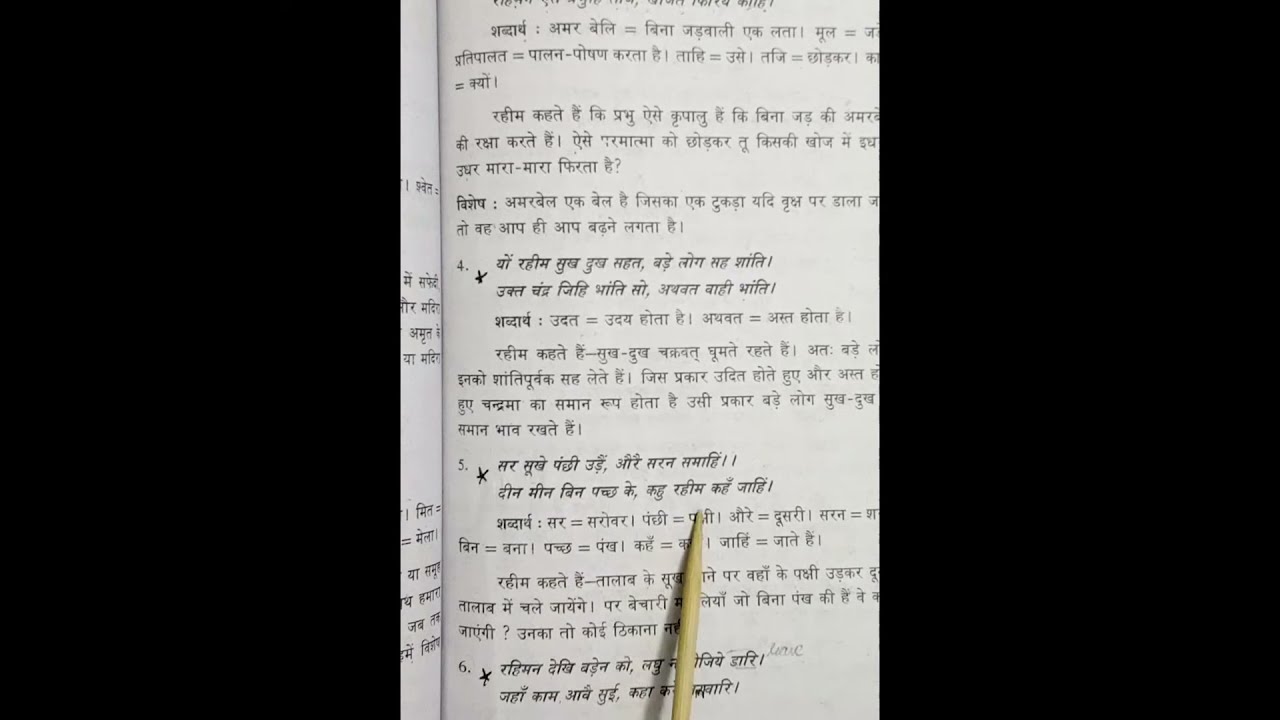 शब्दार्थ : अमर बेलि = बिना जड़वाली एक लता। मूल =
प्रतिपालत = पालन-पोषण करता है। ताहि = उसे। तजि = छोड़कर।
= क्यों।
रहीम कहते हैं कि प्रभु ऐसे कृपालु हैं कि बिना जड़ की
की रक्षा करते हैं। ऐसे परमात्मा को छोड़कर तू किसकी खोज में
उधर मारा-मारा फिरता है?
। श्वेत =
विशेष : अमरबेल एक बेल है जिसका एक टुकड़ा यदि वृक्ष पर डाला
तो वह आप ही आप बढ़ने लगता है।
4. यों रहीम सुख दुख सहत, बड़े लोग सह शांति।
में सफेदी
उक्त चंद्र जिहि भांति सो, अथवत वाही भांति।
और मदिरा
शब्दार्थ : उदत = उदय होता है। अथवत = अस्त होता है।
अमृत के
या मदिरा
रहीम कहते हैं—सुख-दुख चक्रवत् घूमते रहते हैं। अतः बड़े
इनको शांतिपूर्वक सह लेते हैं। जिस प्रकार उदित होते हुए और अस्त
हुए चन्द्रमा का समान रूप होता है उसी प्रकार बड़े लोग सुख-दुख
समान भाव रखते हैं।
5. सर सूखे पंछी उड़ैं, औरै सरन समाहिं।।
दीन मीन बिन पच्छ के, कहु रहीम कहँ जाहिं।
। मित =
शब्दार्थ : सर = सरोवर। पंछी = औरे = दूसरी। सरन =
= मेला।
बिन = बना। पच्छ = पंख। कहँ = जाहिं = जाते हैं।
या समूह
रहीम कहते हैं—तालाब के पर वहाँ के पक्षी उड़कर
हमारा
तालाब में चले जायेंगे। पर बेचारी जो बिना पंख की हैं वे
जब तक
जाएंगी ? उनका तो कोई ठिकाना
में विशेष
6. रहिमन देखि बड़ेन को, लघु डारि।
जहाँ काम आवै सुई, कहा